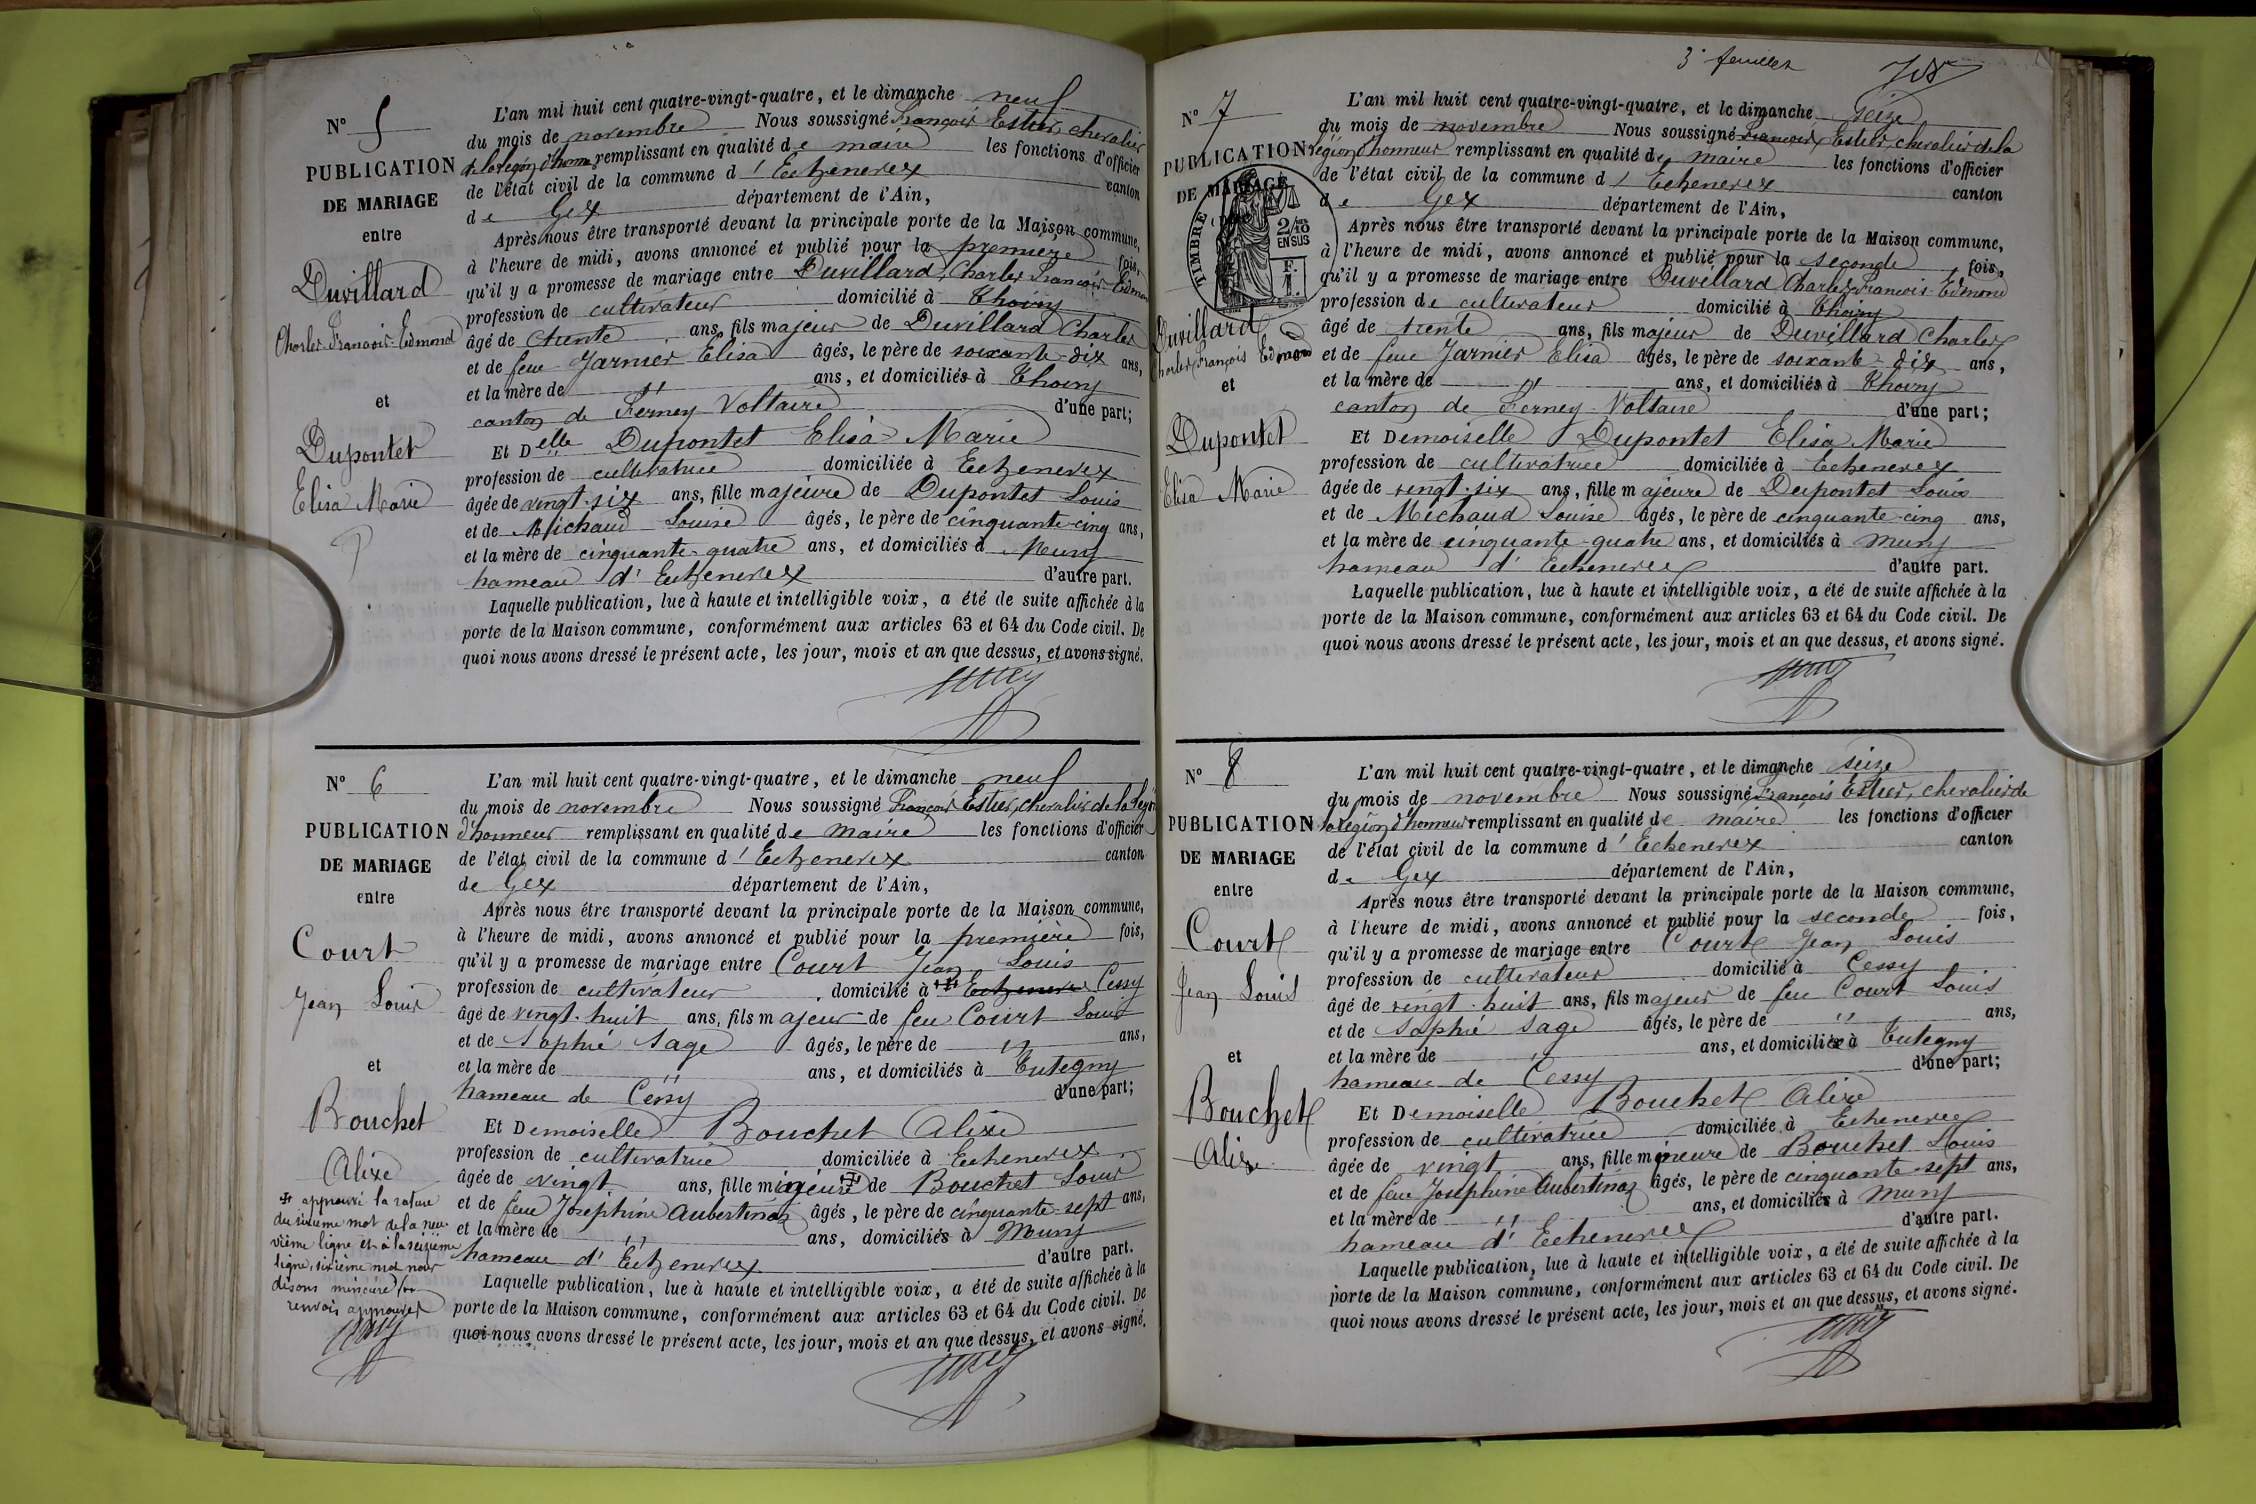 N° 5
PUBLICATION
DE MARIAGE
entre
Duvillard
Charles François Edmond
et
Dupontet
Elisa Marie
L'an mil huit cent quatre-vingt-quatre, et le dimanche neuf
du mois de novembre Nous soussigné François Estier, chevalier
de la légion d'honneur remplissant en qualité de maire les fonctions d'officier
de l'état civil de la commune d'Echenevex canton
de Gex département de l'Ain,
Après nous être transporté devant la principale porte de la Maison commune,
à l'heure de midi, avons annoncé et publié pour la première fois,
qu'il y a promesse de mariage entre Duvillard Charles François Edmond
profession de cultivateur domicilié à Thoiry
âgé de trente ans, fils majeur de Duvillard Charles
et de feue Jarnier Elisa âgés, le père de soixante-dix ans,
et la mère de " ans, et domiciliés à Thoiry
canton de Ferney-Voltaire d'une part;
Et Delle Dupontet Elisa Marie
profession de cultivatrice domiciliée à Echenevex
âgée de vingt-six ans, fille majeure de Dupontet Louis
et de Michaud Louise âgés, le père de cinquante-cinq ans,
et la mère de cinquante-quatre ans, et domiciliés à Mury
hameau d'Echenevex d'autre part.
Laquelle publication, lue à haute et intelligible voix, a été de suite affichée à la
porte de la Maison commune, conformément aux articles 63 et 64 du Code civil. De
quoi nous avons dressé le présent acte, les jour, mois et an que dessus, et avons signé.
N° 6
PUBLICATION
DE MARIAGE
entre
Court
Jean Louis
et
Bouchet
Alixe
approuvé la rature
du sixième mot de la neu
vième ligne et à la seizième
ligne, sixième mot nous
disons mineure
renvois approuvés
L'an mil huit cent quatre-vingt-quatre, et le dimanche neuf
du mois de novembre Nous soussigné François Estier, chevalier de la légion
d'honneur remplissant en qualité de maire les fonctions d'officier
de l'état civil de la commune d'Echenevex canton
de Gex département de l'Ain,
Après nous être transporté devant la principale porte de la Maison commune,
à l'heure de midi, avons annoncé et publié pour la première fois,
qu'il y a promesse de mariage entre Court Jean Louis
profession de cultivateur domicilié à Echenevex Cessy
âgé de vingt-huit ans, fils majeur de feu Court Louis
et de Sophie Sage âgés, le père de " ans,
et la mère de " ans, et domiciliés à Tutegny
hameau de Cessy d'une part;
Et Demoiselle Bouchet Alixe
profession de cultivatrice domiciliée à Echenevex
âgée de vingt ans, fille majeure de Bouchet Louis
et de feue Joséphine Aubertinaz âgés, le père de cinquante-sept ans,
et la mère de " ans, domiciliés à Mury
hameau d'Echenevex d'autre part.
Laquelle publication, lue à haute et intelligible voix, a été de suite affichée à la
porte de la Maison commune, conformément aux articles 63 et 64 du Code civil. De
quoi nous avons dressé le présent acte, les jour, mois et an que dessus, et avons signé.
3e feuillet
N° 7
PUBLICATION
DE MARIAGE
TIMBRE
2/10
EN SUS
F.
1.
Duvillard
Charles François Edmond
et
Dupontet
Elisa Marie
L'an mil huit cent quatre-vingt-quatre, et le dimanche seize
du mois de novembre Nous soussigné François Estier, chevalier de la
légion d'honneur remplissant en qualité de maire les fonctions d'officier
de l'état civil de la commune d'Echenevex canton
de Gex département de l'Ain,
Après nous être transporté devant la principale porte de la Maison commune,
à l'heure de midi, avons annoncé et publié pour la seconde fois,
qu'il y a promesse de mariage entre Duvillard Charles François Edmond
profession de cultivateur domicilié à Thoiry
âgé de trente ans, fils majeur de Duvillard Charles
et de feue Jarnier Elisa âgés, le père de soixante-dix ans,
et la mère de " ans, et domiciliés à Thoiry
canton de Ferney-Voltaire d'une part;
Et Demoiselle Dupontet Elisa Marie
profession de cultivatrice domiciliée à Echenevex
âgée de vingt-six ans, fille majeure de Dupontet Louis
et de Michaud Louise âgés, le père de cinquante-cinq ans,
et la mère de cinquante-quatre ans, et domiciliés à Mury
hameau d'Echenevex d'autre part.
Laquelle publication, lue à haute et intelligible voix, a été de suite affichée à la
porte de la Maison commune, conformément aux articles 63 et 64 du Code civil. De
quoi nous avons dressé le présent acte, les jour, mois et an que dessus, et avons signé.
N° 8
PUBLICATION
DE MARIAGE
entre
Court
Jean Louis
et
Bouchet
Alixe
L'an mil huit cent quatre-vingt-quatre, et le dimanche seize
du mois de novembre Nous soussigné François Estier, chevalier de
la légion d'honneur remplissant en qualité de maire les fonctions d'officier
de l'état civil de la commune d'Echenevex canton
de Gex département de l'Ain,
Après nous être transporté devant la principale porte de la Maison commune,
à l'heure de midi, avons annoncé et publié pour la seconde fois,
qu'il y a promesse de mariage entre Court Jean Louis
profession de cultivateur domicilié à Cessy
âgé de vingt-huit ans, fils majeur de feu Court Louis
et de Sophie Sage âgés, le père de " ans,
et la mère de " ans, et domiciliée à Tutegny
hameau de Cessy d'une part;
Et Demoiselle Bouchet Alixe
profession de cultivatrice domiciliée à Echenevex
âgée de vingt ans, fille mineure de Bouchet Louis
et de feue Joséphine Aubertinaz âgés, le père de cinquante-sept ans,
et la mère de " ans, et domiciliés à Mury
hameau d'Echenevex d'autre part.
Laquelle publication, lue à haute et intelligible voix, a été de suite affichée à la
porte de la Maison commune, conformément aux articles 63 et 64 du Code civil. De
quoi nous avons dressé le présent acte, les jour, mois et an que dessus, et avons signé.